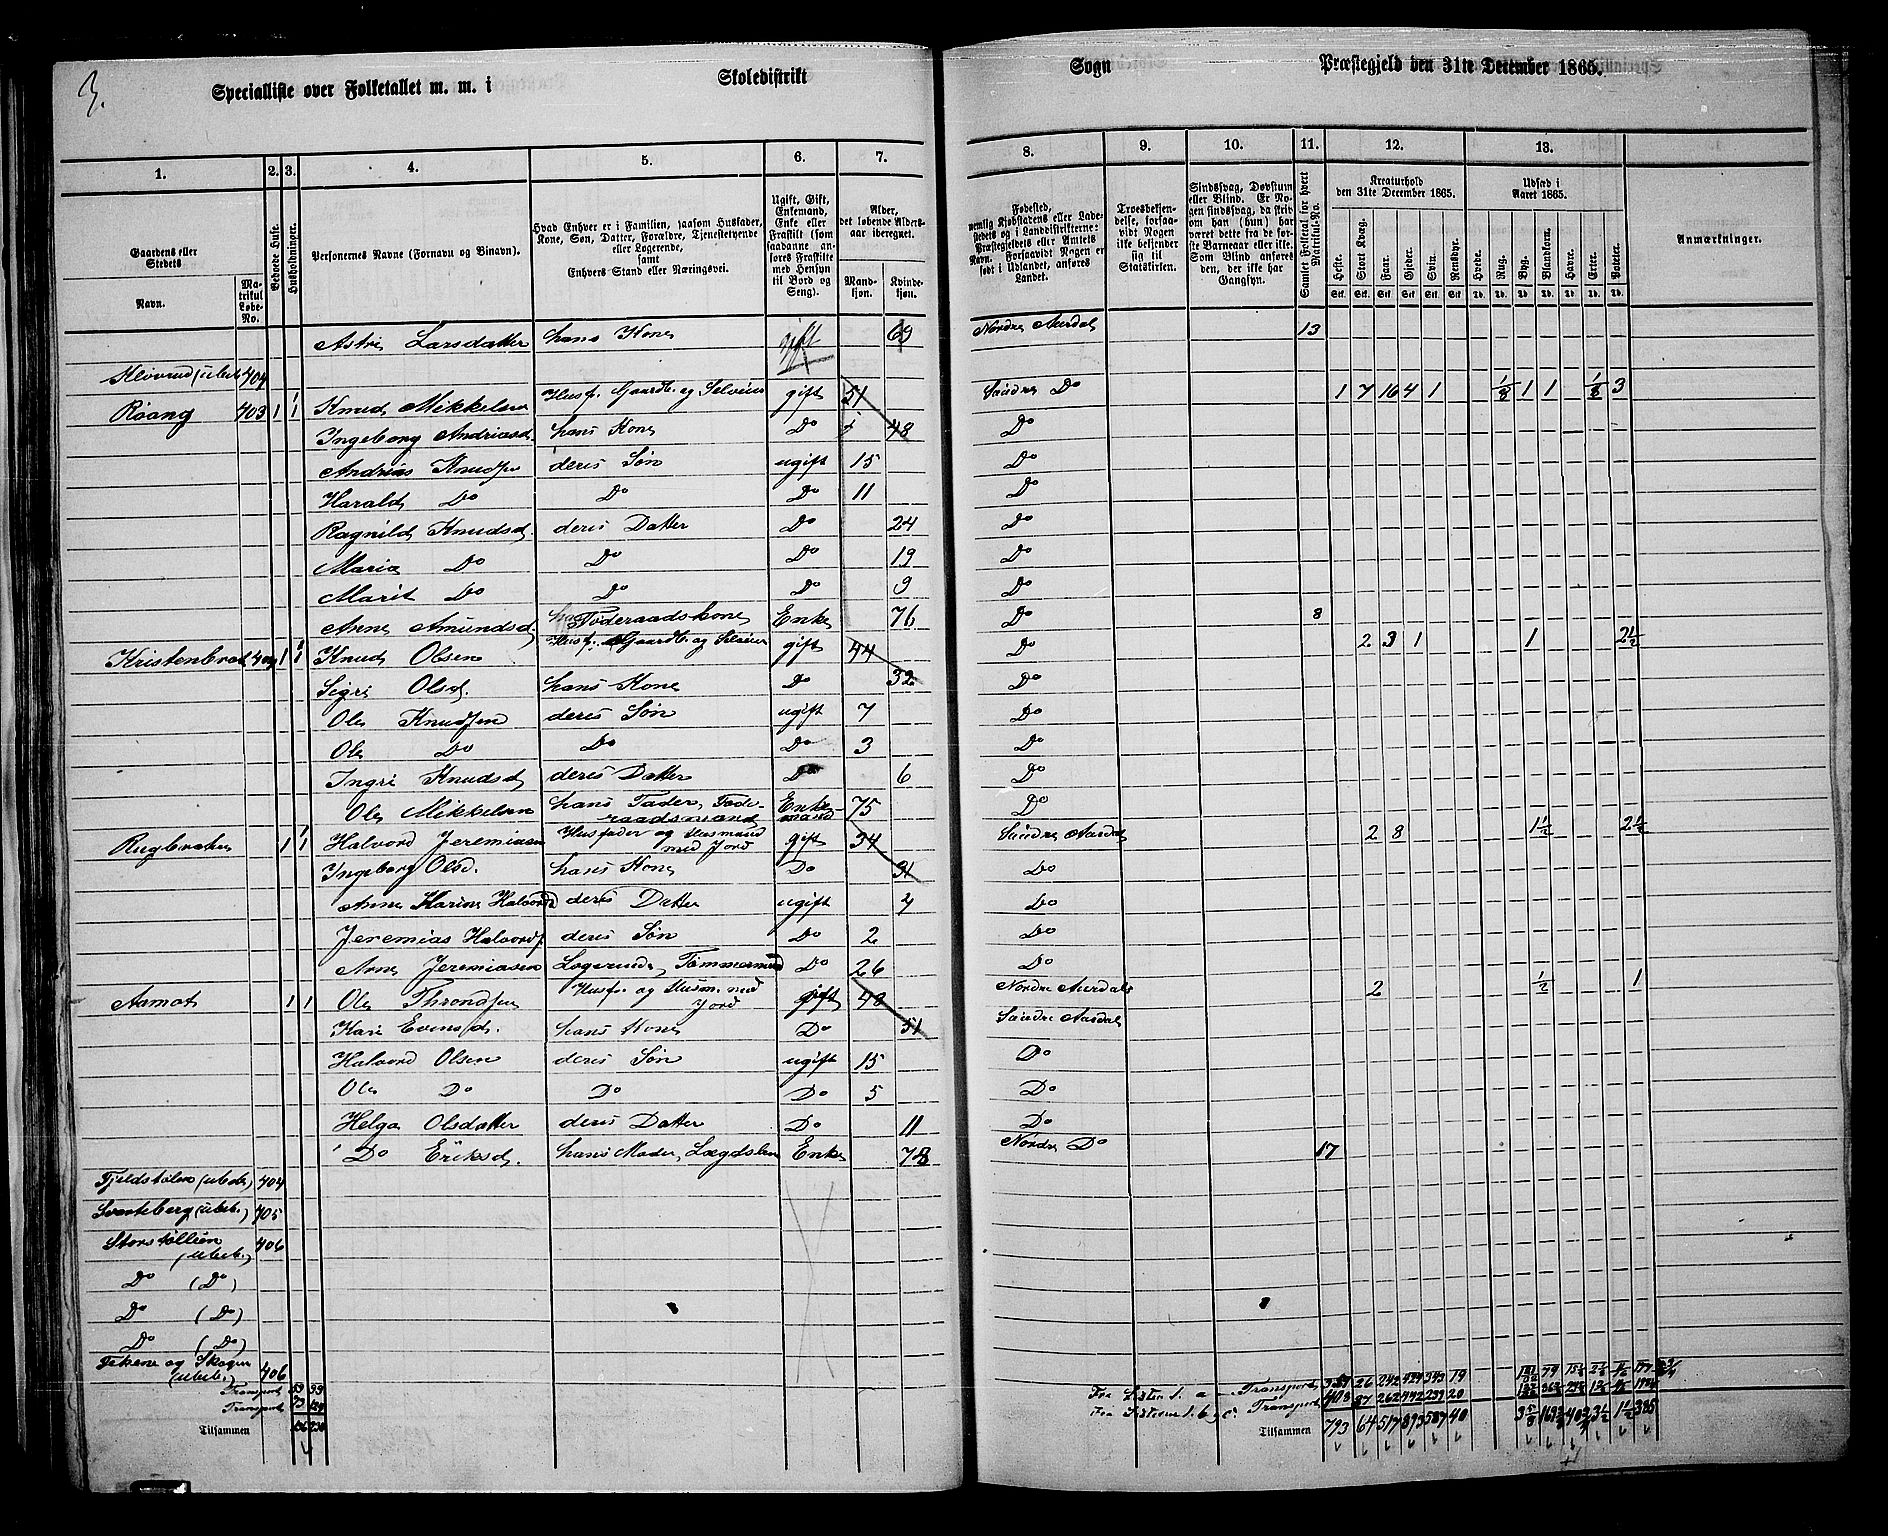 3.
Specialliste over Folketallet m. m. i Skoledistrikt Sogn Præstegjeld den 31te December 1865.
1. 2. 3. 4. 5. 6. 7. 8. 9. 10. 11. 12. 13.
Gaardens eller Stedets
Navn.
Matrikul Løbe-No.
Beboede Huse.
Husholdninger.
Personernes Navne (Fornavn og Binavn).
Hvad Enhver er i Familien, saasom Husfader, Kone, Søn, Datter, Forældre, Tjenestetyende eller Logerende, samt Enhvers Stand eller Næringsvei.
Ugift, Gift, Enkemand, Enke eller Fraskilt (som saadanne anføres Fraskilte med Hensyn til Bord og Seng).
Alder, det løbende Aldersaar iberegnet.
Mandkjøn. Kvindekjøn.
Fødested, nemlig Kjøbstadens eller Ladestedets og i Landdistrikterne: Præstegjeldets eller Amtets Navn. Forsaavidt Nogen er født i Udlandet, anføres Landet.
Troesbekjendelse, forsaavidt Nogen ikke bekjender sig til Statskirken.
Sindssvag, Døvstum eller Blind. Er Nogen sindssvag, da skrives om han (hun) har været dette fra de første Barneaar eller ikke. Som Blind anføres den, der ikke har Gangsyn.
Samlet Folketal for hvert Matrikul-No.
Kreaturhold den 31te December 1865.
Heste. Stort Kvæg. Faar. Gjeder. Svin. Rensdyr.
Udsæd i Aaret 1865.
Hvede. Rug. Byg. Blandkorn. Havre. Erter. Poteter.
Anmærkninger.
Astri Larsdatter hans Kone gift 69 Nordre Aurdal 13
Kløvrud (ubeb. 404
Røang 403 1 1 Knud Mikkelsen Husf. Gaardb. og Selveier gift 51 Søndre Do 1 7 16 4 1 1/8 1 1 1/8 3
Ingeborg Andriasd. hans Kone Do 48 Do
Andrias Knudsen deres Søn ugift 15 Do
Harald Do Do Do 11 Do
Ragnild Knudsd. deres Datter Do 24 Do
Maria Do Do Do 19 Do
Marit Do Do Do 9 Do
Anne Amundsd. Føderaadskone Enke 76 Do 8
Kristenbraat 1 1 Knud Olsen Husf. Gaardb. og Selveier gift 44 Do 2 3 1 1 2 1/2
Sigri Olsd. hans Kone Do 32 Do
Ole Knudsen deres Søn ugift 7 Do
Ole Do Do Do 3 Do
Ingri Knudsd deres Datter Do 6 Do
Ole Mikkelsen hans Fader, Føderaadsmand Enkemand 75 Do
Rugbraaten 1 1 Halvord Jeremiasen Husfader og Husmand med Jord gift 34 Søndre Aurdal 2 8 1 1/2 2 1/2
Ingeborg Olsd. hans Kone Do 31 Do
Anne Karine Halvordd deres Datter ugift 4 Do
Jeremias Halvords. deres Søn Do 2 Do
Arne Jeremiasen Logerende, Tømmermand Do 26 Do
Aamot 1 1 Ole Throndsen Husf. og Husm. med Jord gift 48 Nordre Aurdal 2 1/2 1
Kari Evensd. hans Kone Do 51 Søndre Aurdal
Halvord Olsen deres Søn ugift 15 Do
Ole Do Do Do 5 Do
Helga Olsdatter deres Datter Do 11 Do
Do Eriksd. hans Moder, Lægdslem Enke 78 Nordre Do 17
Fjeldstølen (ubeb.) 404
Svarteberg (ubeb.) 405
Storstøllein (ubeb.) 406
Do (Do)
Do (Do)
Do (Do)
og Skogen (ubeb.) 406
Transport
Transport
Tilsammen
Fra Listen 1. a Transport
Fra Listerne 1. b og c. Transport
Tilsammen 793 64 517 893 587 40